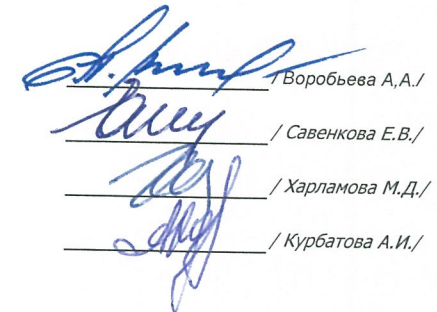 /Воробьева А,А./
/ Савенкова Е.В./
/ Харламова М.Д./
/ Курбатова А.И./